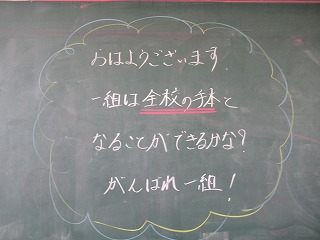 おはようございます
一組は全校の手本と
なることができるかな?
がんばれ一組!